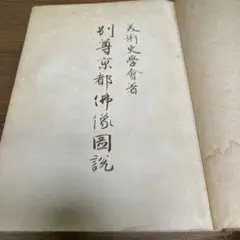 美術史學會著
別尊京都佛像圖說